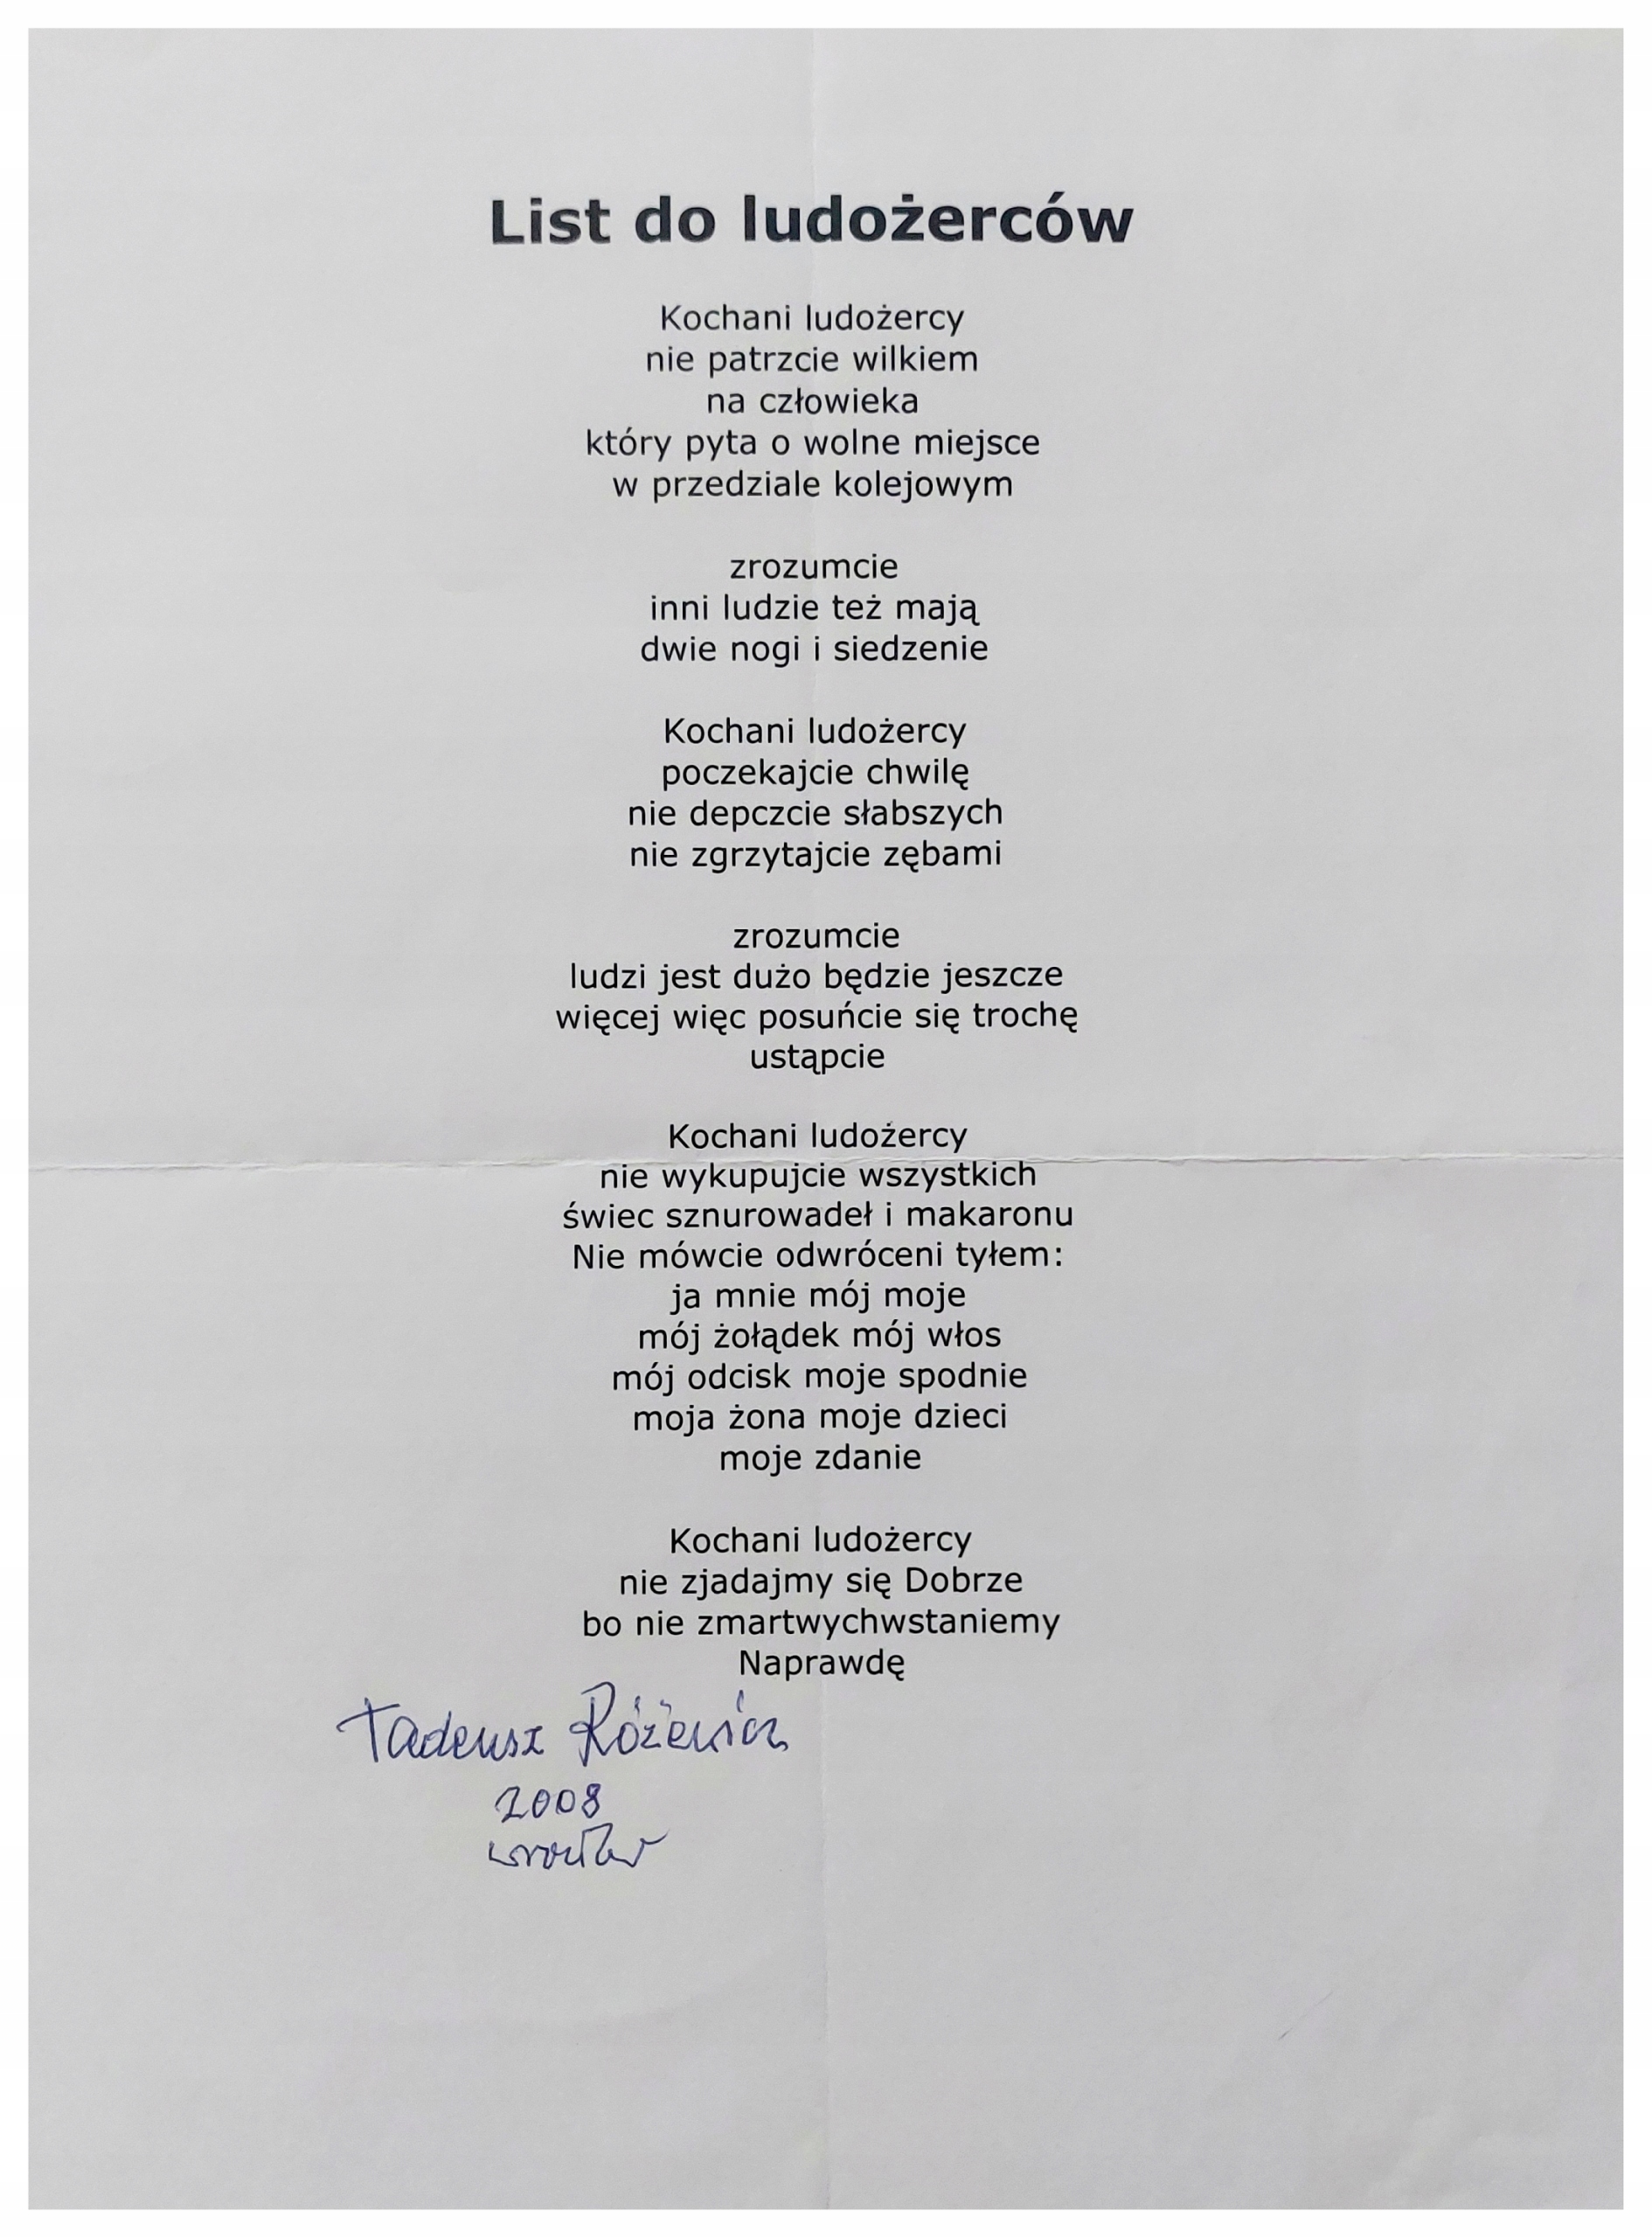 List do ludożerców
Kochani ludożercy
nie patrzcie wilkiem
na człowieka
który pyta o wolne miejsce
w przedziale kolejowym
zrozumcie
inni ludzie też mają
dwie nogi i siedzenie
Kochani ludożercy
poczekajcie chwilę
nie depczcie słabszych
nie zgrzytajcie zębami
zrozumcie
ludzi jest dużo będzie jeszcze
więcej więc posuńcie się trochę
ustąpcie
Kochani ludożercy
nie wykupujcie wszystkich
świec sznurowadeł i makaronu
Nie mówcie odwróceni tyłem:
ja mnie mój moje
mój żołądek mój włos
mój odcisk moje spodnie
moja żona moje dzieci
moje zdanie
Kochani ludożercy
nie zjadajmy się Dobrze
bo nie zmartwychwstaniemy
Naprawdę
Tadeusz Różewicz
2008
Wrocław